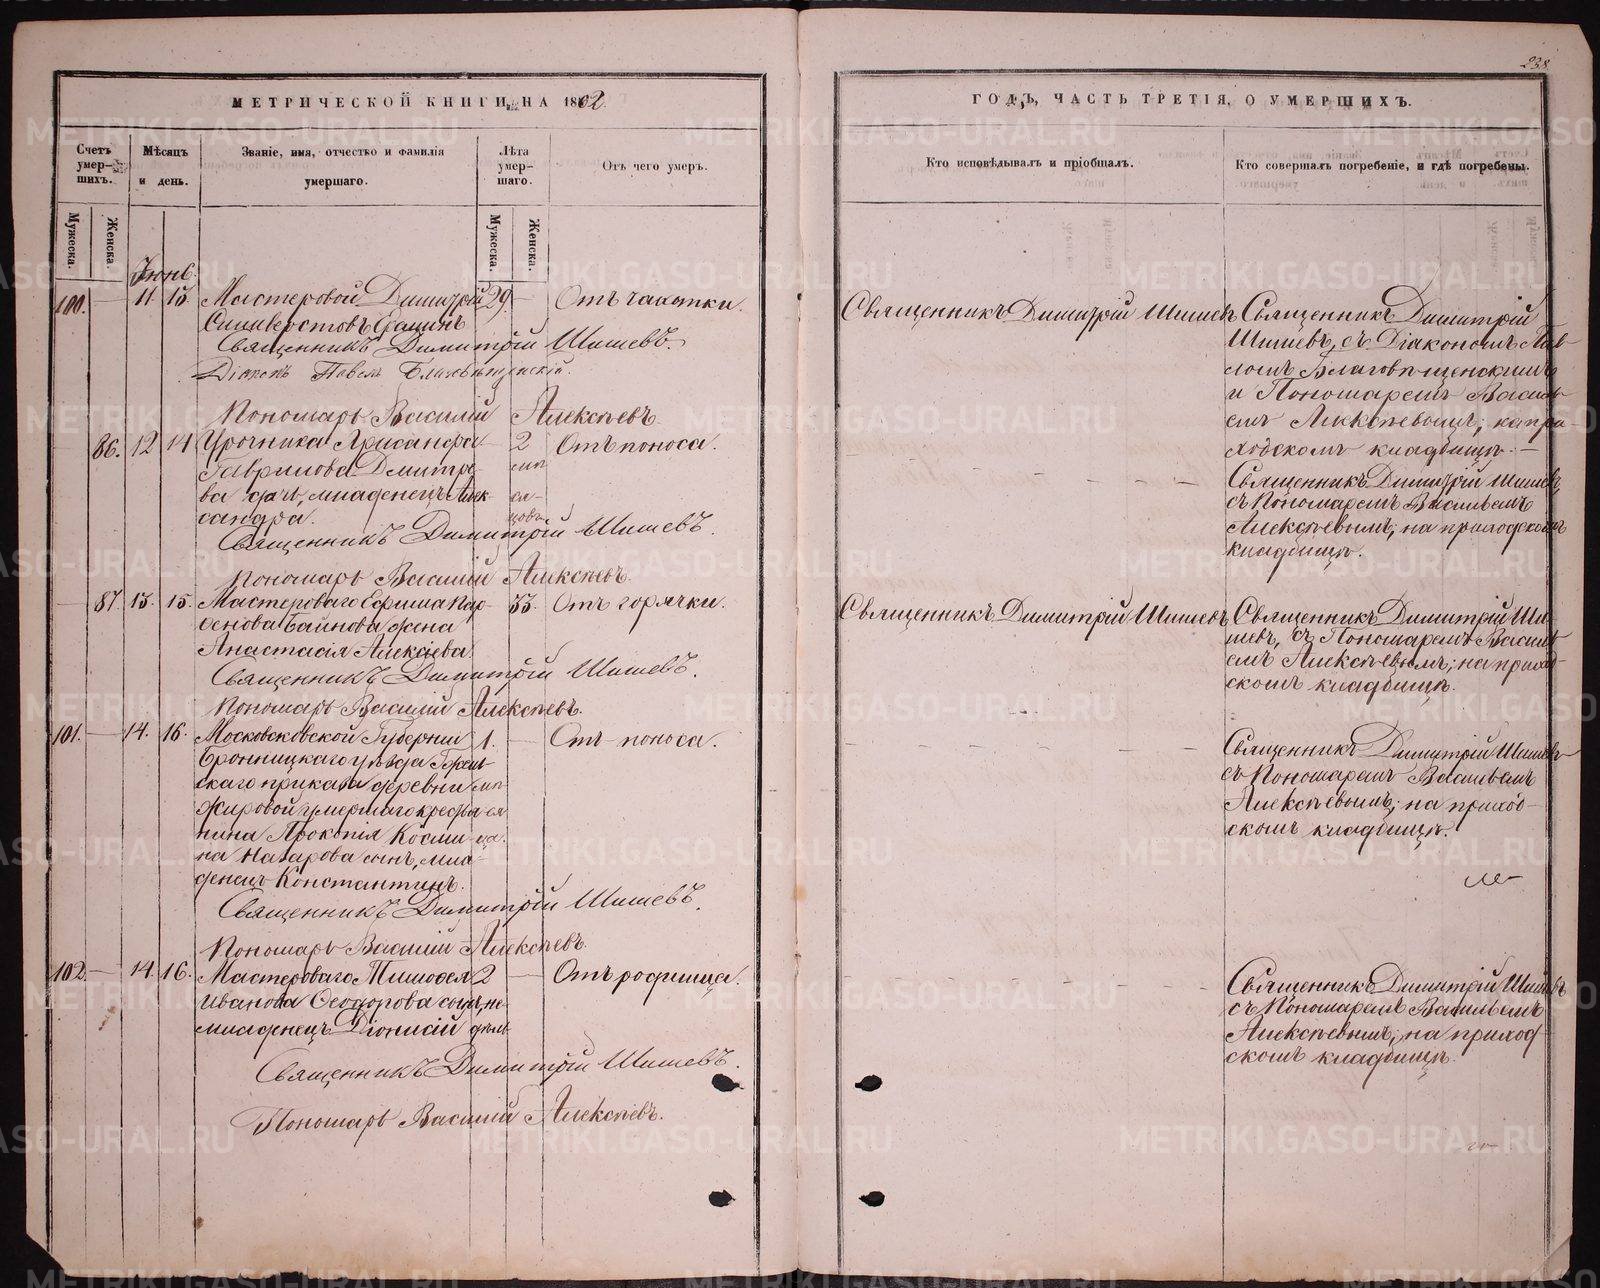 238
МЕТРИЧЕСКОЙ КНИГИ, НА 1862
ГОДЪ, ЧАСТЬ ТРЕТІЯ, О УМЕРШИХЪ.
Счетъ умер-шихъ.
Мѣсяцъ и день.
Званіе, имя, отчество и фамилія умершаго.
Лѣта умер-шаго.
Отъ чего умеръ.
Кто исповѣдывалъ и пріобщалъ.
Кто совершалъ погребеніе, и гдѣ погребены.
Мужеска.
Женска.
Мужеска.
Женска.
Іюнь
100. — 11 13 Мастеровой Димитрій 29 — Отъ чахотки.
Силиверстовъ
Священникъ Димитрій Шишевъ.
Діаконъ Павелъ Благовѣщенскій.
Пономарь Василій Алексѣевъ.
Священникъ Димитрій Шишевъ
Священникъ Димитрій
Шишевъ, съ Діакономъ Пав-
ломъ Благовѣщенскимъ
и Пономаремъ Василь-
емъ Алексѣевымъ; на при-
ходскомъ кладбищѣ. —
— 86. 12 14 Урочника Александра — 2 Отъ поноса.
Гаврилова Дмитрі- мѣ-
ева дочь, младенецъ Алек- ся-
сандра. цовъ
Священникъ Димитрій Шишевъ.
Пономарь Василій Алексѣевъ.
Священникъ Димитрій Шишевъ,
съ Пономаремъ Васильемъ
Алексѣевымъ; на приходскомъ
кладбищѣ.
— 87 13. 15. Мастероваго Ефима Пар- 33. Отъ горячки.
фенова Байнова жена
Анастасія Алексіева
Священникъ Димитрій Шишевъ.
Пономарь Василій Алексѣевъ.
Священникъ Димитрій Шишевъ
Священникъ Димитрій Ши-
шевъ, съ Пономаремъ Василь-
емъ Алексѣевымъ; на приход-
скомъ кладбищѣ.
101. — 14. 16. Московсковской Губерніи 1. — Отъ поноса.
Бронницкаго уѣзда
скаго приказа деревни мѣ-
Жировой умершаго крестья- ся
нина Прокопія Косми- ца.
на Назарова сынъ, мла-
денецъ Константинъ.
Священникъ Димитрій Шишевъ.
Пономарь Василій Алексѣевъ.
Священникъ Димитрій Шишевъ
съ Пономаремъ Васильемъ
Алексѣевымъ; на приход-
скомъ кладбищѣ.
102. — 14. 16. Мастероваго Тимофея 2 — Отъ родимца.
Иванова Ѳеодорова сынъ, не-
младенецъ Діонисій дѣль
Священникъ Димитрій Шишевъ.
Пономарь Василій Алексѣевъ.
Священникъ Димитрій Шишевъ
съ Пономаремъ Васильемъ
Алексѣевымъ; на приход-
скомъ кладбищѣ.
METRIKI.GASO-URAL.RU